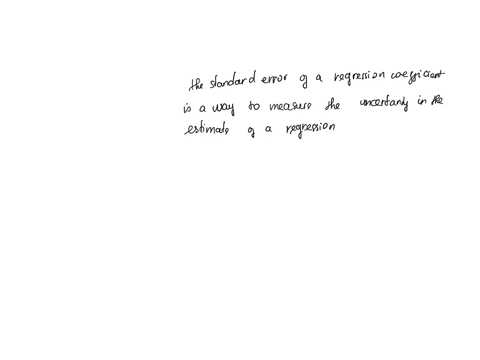 the standard error of a regression coefficient
is a way to measure the uncertanly in the
estimate of a regression